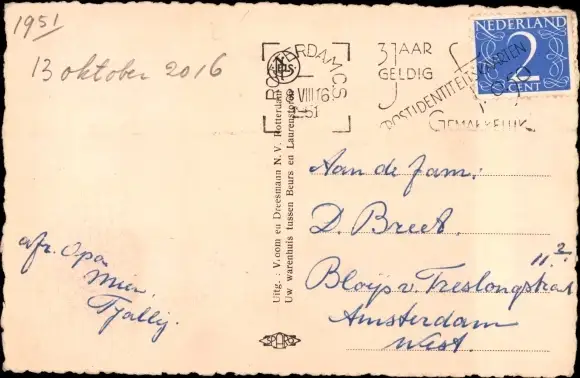 1951
13 oktober 2016
ROTTERDAM C.S.
VIII 16
51
3 JAAR
GELDIG
POSTIDENTITEITSKAARTEN
GEMAKKELIJK
NEDERLAND
2
CENT
Uitg.: Vroom en Dreesmann N.V. Rotterdam
Uw warenhuis tussen Beurs en Laurenstoren
Aan de fam:
D. Breet.
11.2
Bloijs v. Treslongstraat
Amsterdam
West.
afz. Opa
Mien.
Tjallij.
SPARO